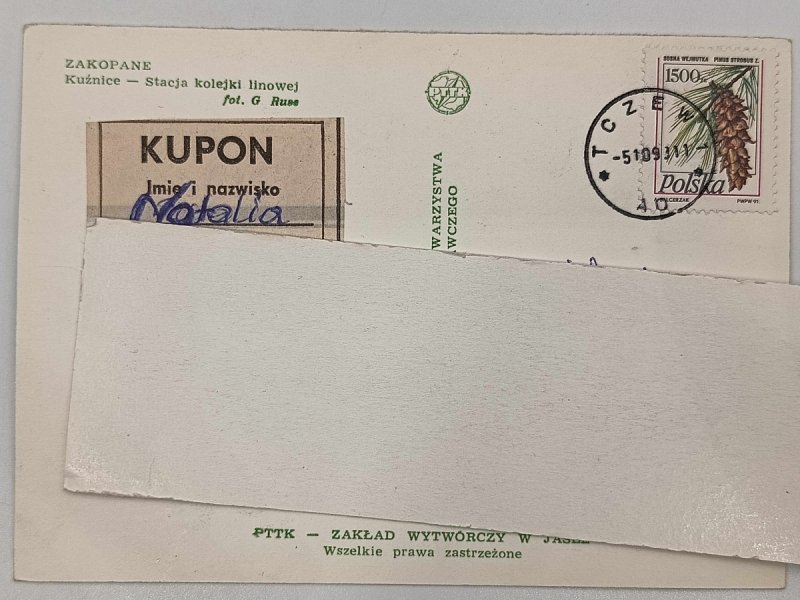 ZAKOPANE
Kuźnice — Stacja kolejki linowej
fot. G Russ
PTTK
KUPON
Imię i nazwisko
Natalia
WARZYSTWA
AWCZEGO
SOSNA WEJMUTKA PINUS STROBUS L.
1500
Polska
PWPW 91
TCZEW
PTTK — ZAKŁAD WYTWÓRCZY W JAŚLE
Wszelkie prawa zastrzeżone